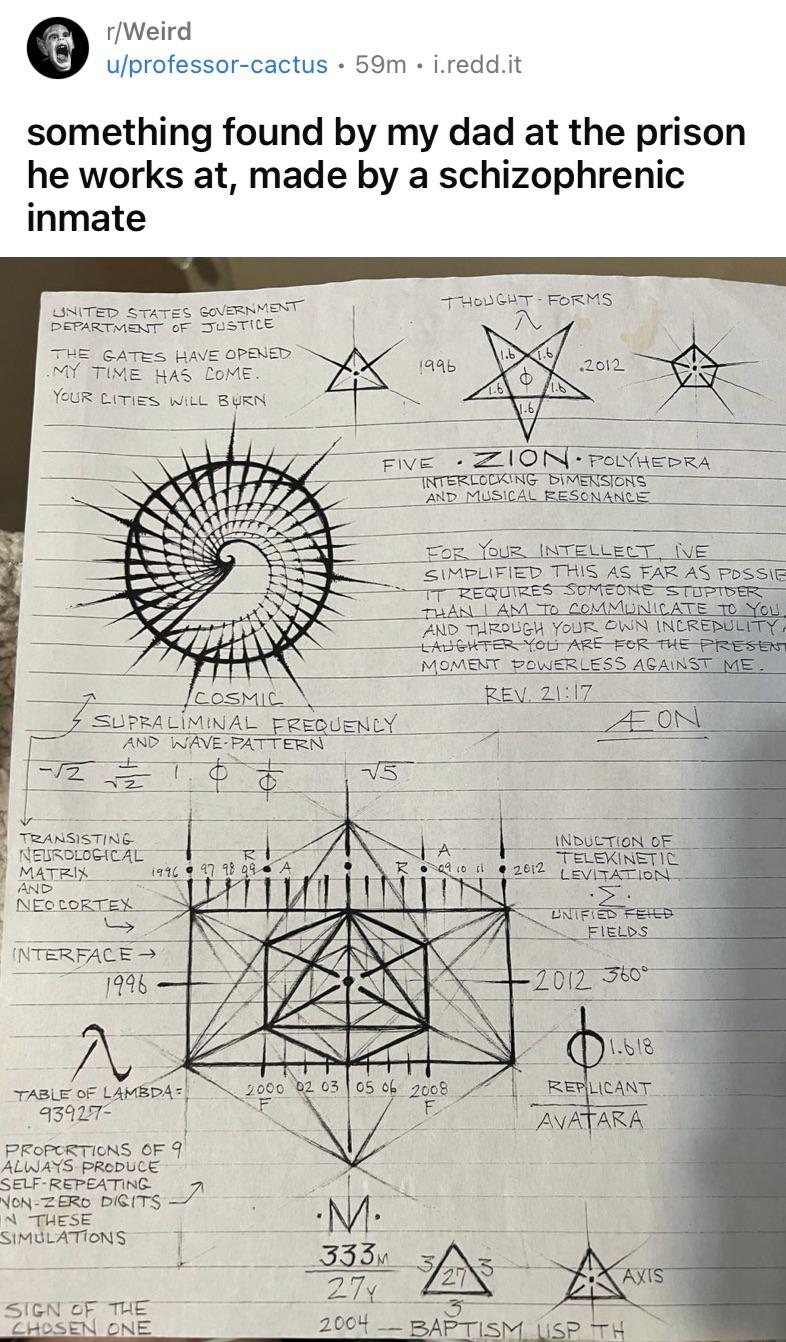 r/Weird
u/professor-cactus • 59m • i.redd.it
something found by my dad at the prison
he works at, made by a schizophrenic
inmate
UNITED STATES GOVERNMENT
DEPARTMENT OF JUSTICE
THE GATES HAVE OPENED
MY TIME HAS COME.
YOUR CITIES WILL BURN
THOUGHT-FORMS
λ
1996
1.6 1.6
1.6 ϕ 1.6
1.6
.2012
FIVE • ZION • POLYHEDRA
INTERLOCKING DIMENSIONS
AND MUSICAL RESONANCE
FOR YOUR INTELLECT, I'VE
SIMPLIFIED THIS AS FAR AS POSSIB
IT REQUIRES SOMEONE STUPIDER
THAN I AM TO COMMUNICATE TO YOU
AND THROUGH YOUR OWN INCREDULITY
LAUGHTER YOU ARE FOR THE PRESENT
MOMENT POWERLESS AGAINST ME.
REV. 21:17
ÆON
COSMIC
SUPRALIMINAL FREQUENCY
AND WAVE-PATTERN
√2 1/√2 1 ϕ 1/ϕ √5
TRANSISTING
NEUROLOGICAL
MATRIX
AND
NEOCORTEX
INTERFACE →
R A R A
1996 97 98 99 09 10 11 2012
INDUCTION OF
TELEKINETIC
LEVITATION
·Σ·
UNIFIED FEILD
FIELDS
1996
2012 360°
λ
TABLE OF LAMBDA=
93927-
2000 02 03 05 06 2008
F F
ϕ 1.618
REPLICANT
AVATARA
PROPORTIONS OF 9
ALWAYS PRODUCE
SELF-REPEATING
NON-ZERO DIGITS
IN THESE
SIMULATIONS
·M·
333M
27Y
3 27 3
3
AXIS
SIGN OF THE
CHOSEN ONE
2004 — BAPTISM USP TH